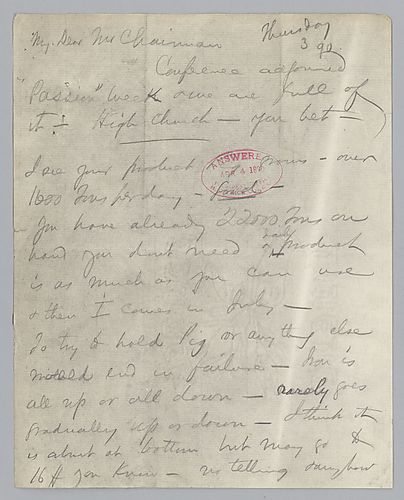 My Dear Mr Chairman
Thursday
3 90
Conference adjourned
"Passion" Week & we are full of
it — High Church — you bet —
I see your product is now — over
ANSWERED
APR 4 18
1600 Tons per day — Good —
You have already 22000 Tons on
hand you don't need it daily product
is as much as you can use
& then I comes in July —
To try & hold Pig or anything else
would end in failure — Iron is
all up or all down — rarely goes
gradually up or down — I think it
is about at bottom but may go to
16 # you know — no telling